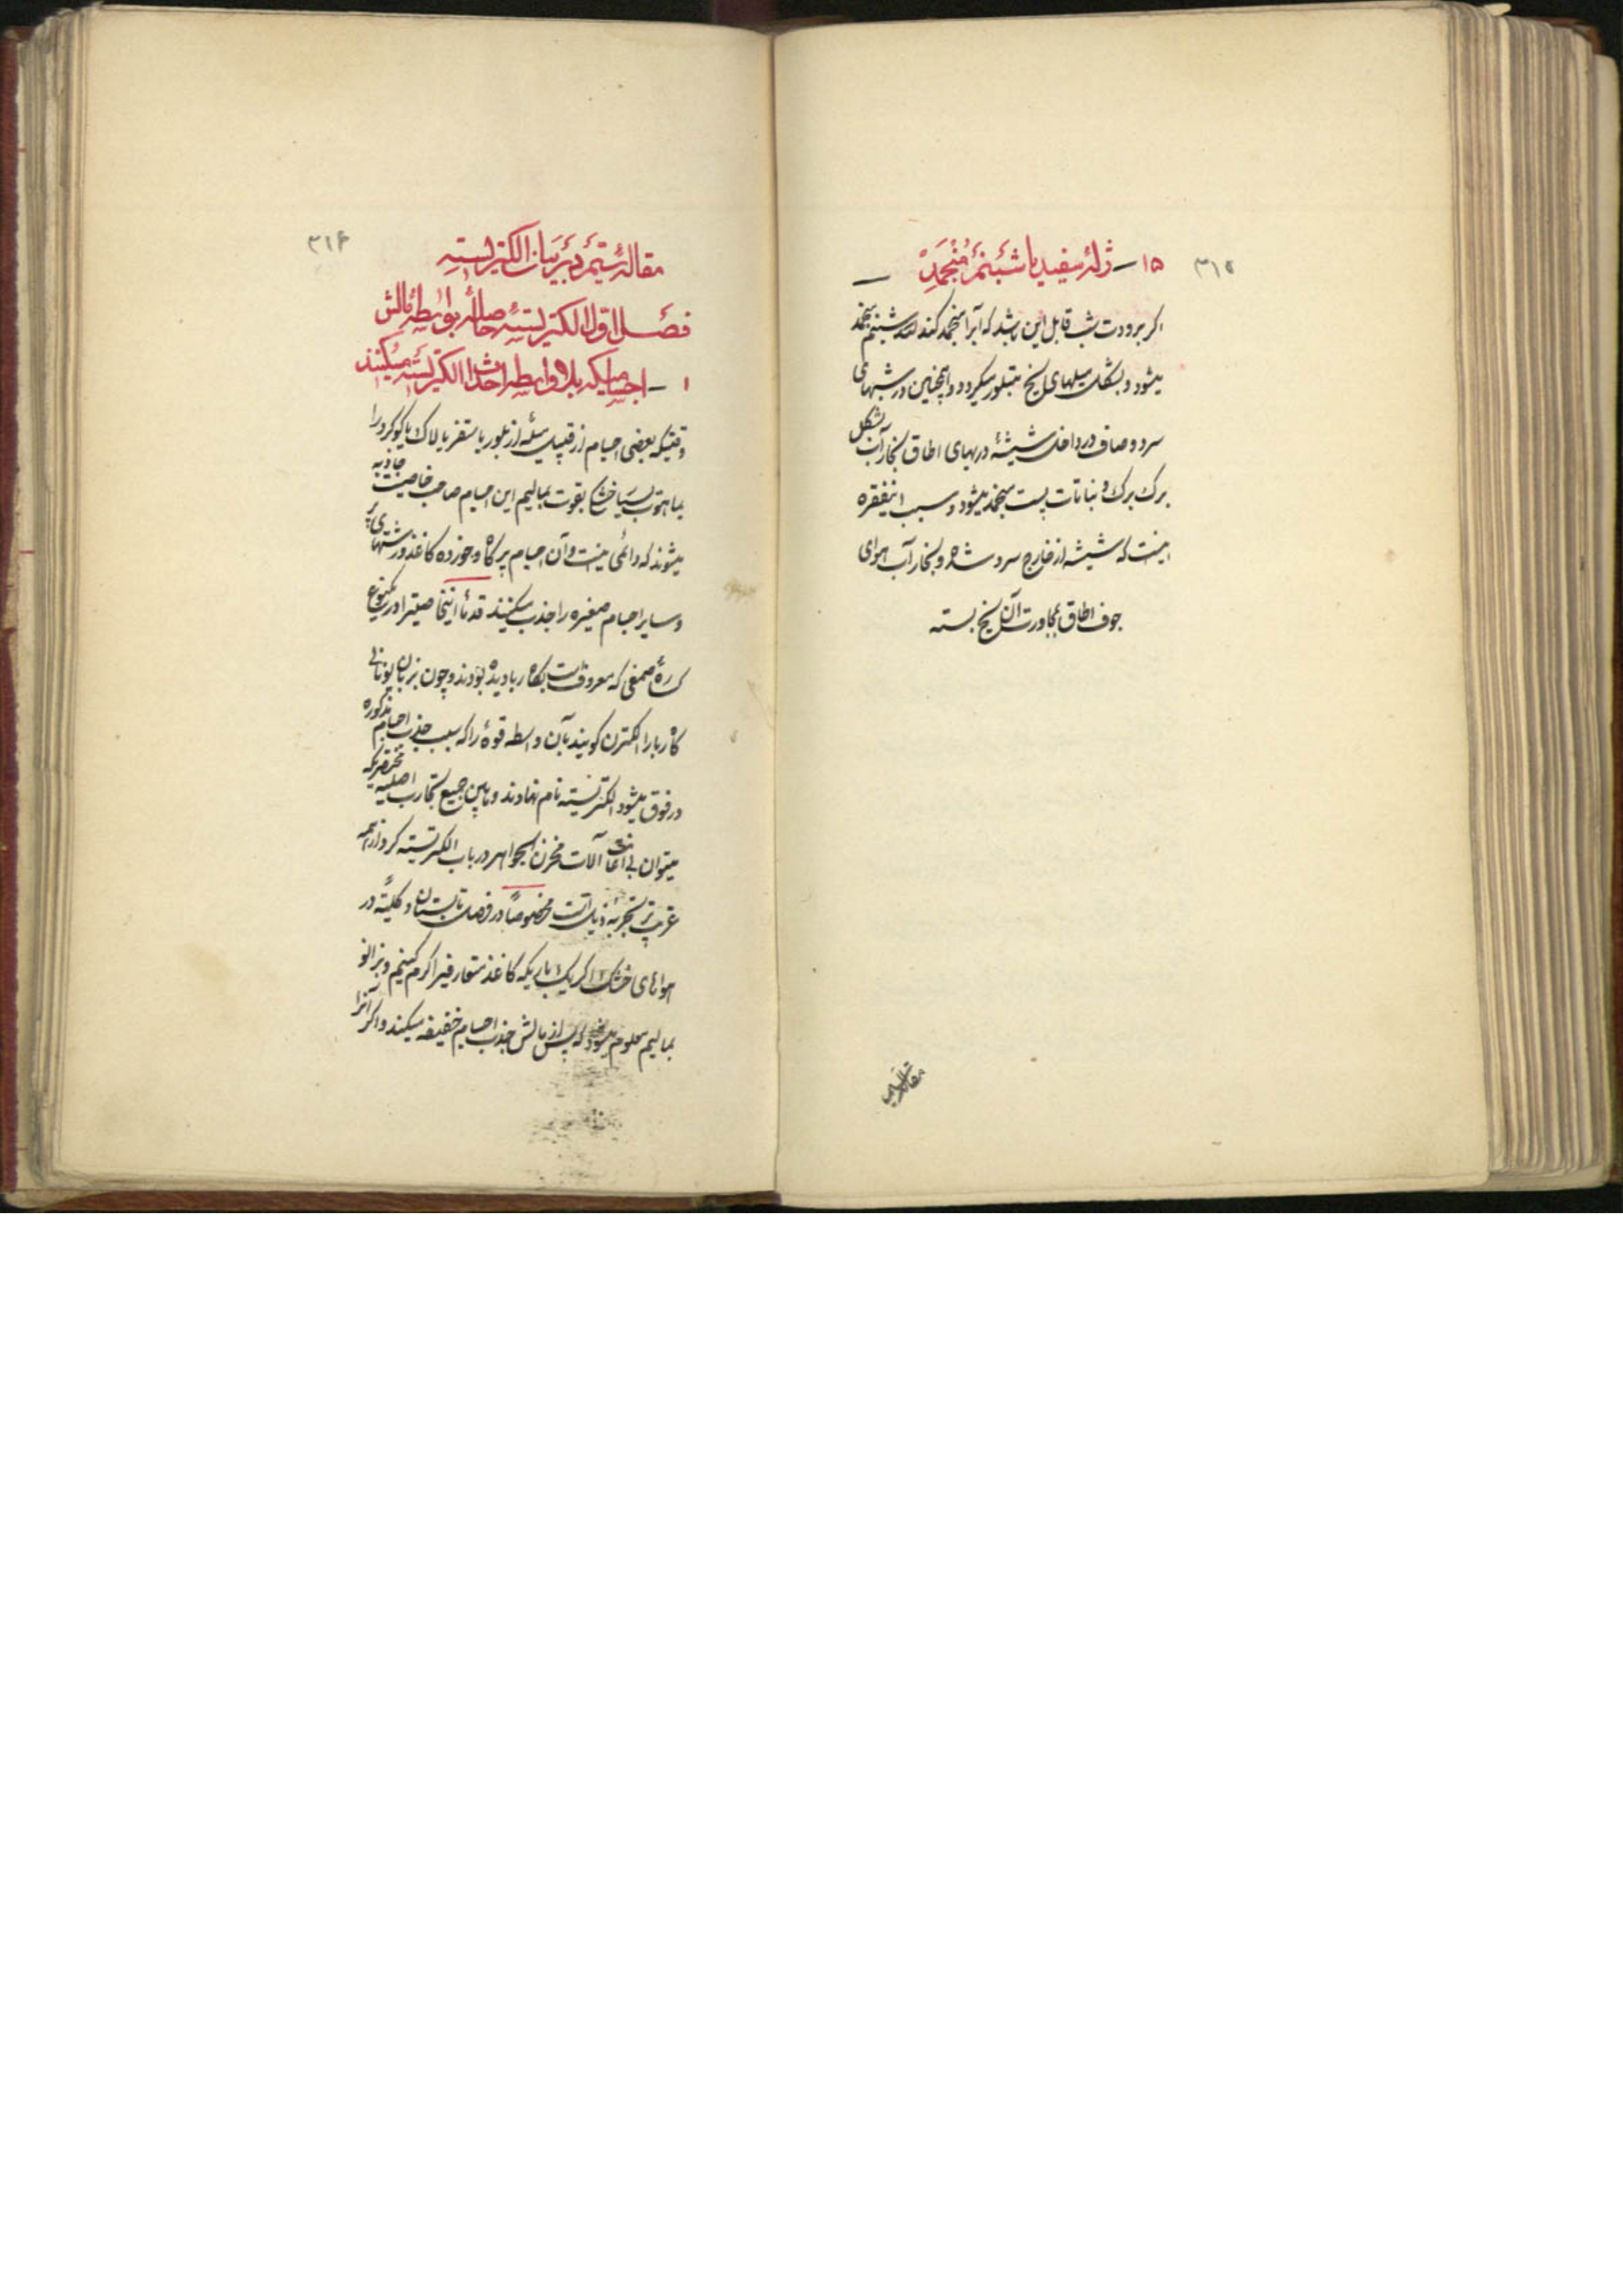 ۳۱۵
۱۵ – ژلهٔ سفید یا شبنم منجمد –
اکر برودت شب قابل این باشد که آبرا منجمد کند شبنم منجمد
میشود و بشکل میلهای یخ متبلور میکردد و همچنین در شبهای
سرد و صاف در داخل شیشهٔ دربهای اطاق بخار آب بشکل
برک برک و نباتات پست منجمد میشود و سبب اینفقره
اینست که شیشه از خارج سرد شده و بخار آب هوای
جوف اطاق بمجاورت آن یخ بسته
۳۱۶
مقالهٔ سیم در بیان الکتریسته
فصل اول الکتریستهٔ حاصله بواسطهٔ مالش
۱ – اجسامیکه بلاواسطه احداث الکتریسته میکنند
وقتیکه بعضی اجسام از قبیل میلهٔ از بلور یا سقز یا لاک یا کوکرد را
بماهوت بسیار خشک بقوت بمالیم این اجسام صاحب خاصیت جاذبه
میشوند که دائمی نیست و آن اجسام پر کاه و خورده کاغذ و رشتهای پر
و سایر اجسام صغیره را جذب میکنند قدما اینخاصیترا در یکنوع
صمغی که معروفست بکاه ربا دیده بودند و چون بزبان یونانی
کاه ربا را الکترن کویند بآن واسطه قوهٔ را که سبب جذب اجسام مذکوره
در فوق میشود الکتریسته نام نهادند و مابین جمیع تجارب اصلیه مختصریکه
میتوان بی اعانت آلات مخزن الجواهر در باب الکتریسته کرد از همه
غریب‌تر تجربهٔ ذیل است مخصوصاً در فصل تابستان و کلیتهً در
هواهای خشک اکر یک پارچه کاغذ متعارفیرا کرم کنیم و بزانو
بمالیم معلوم میشود که پس از مالش جذب اجسام خفیفه میکند و اکر آنرا